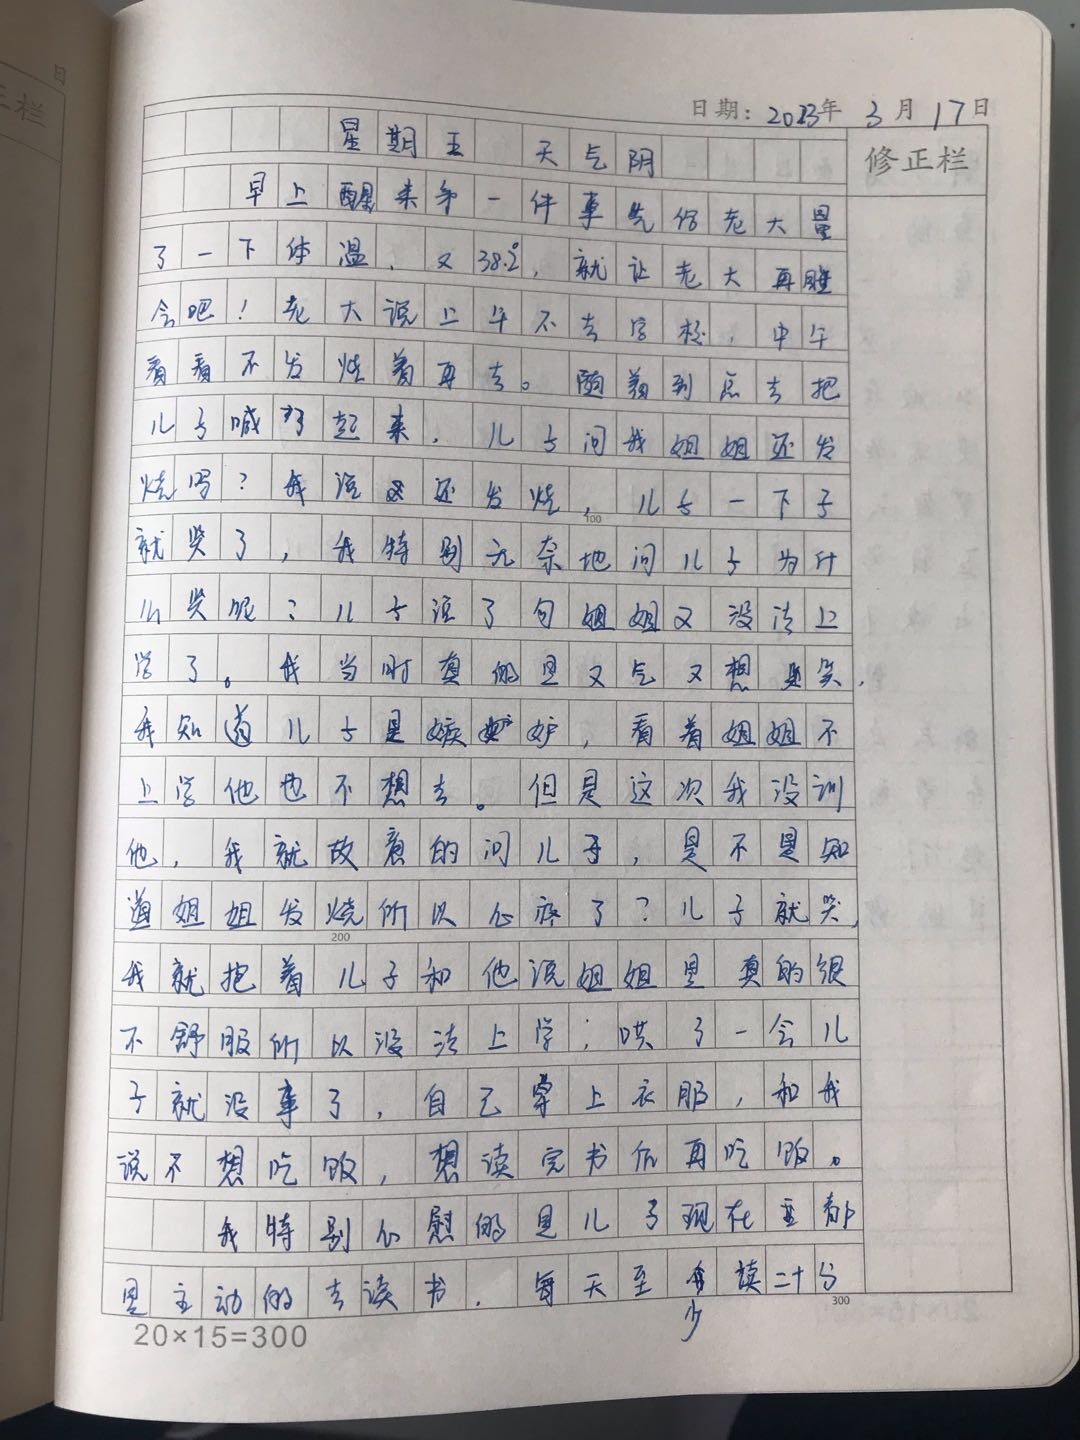 日期：2023年3月17日
修正栏
星期五 天气阴
早上醒来第一件事先给老大量
了一下体温，又38.2°，就让老大再睡
会吧！老大说上午不去学校，中午
看看不发烧着再去。随着到点去把
儿子喊起来，儿子问我姐姐还发
烧吗？我说还发烧，儿子一下子
100
就哭了，我特别无奈地问儿子为什
么哭呢？儿子说了句姐姐又没法上
学了。我当时真的是又气又想笑，
我知道儿子是嫉妒，看着姐姐不
上学他也不想去。但是这次我没训
他，我就故意的问儿子，是不是知
道姐姐发烧所以心疼了？儿子就哭，
200
我就抱着儿子和他说姐姐是真的很
不舒服所以没法上学；哄了一会儿
子就没事了，自己穿上衣服，和我
说不想吃饭，想读完书后再吃饭。
我特别心慰的是儿子现在至都
是主动的去读书，每天至少读二十分
300
20×15=300